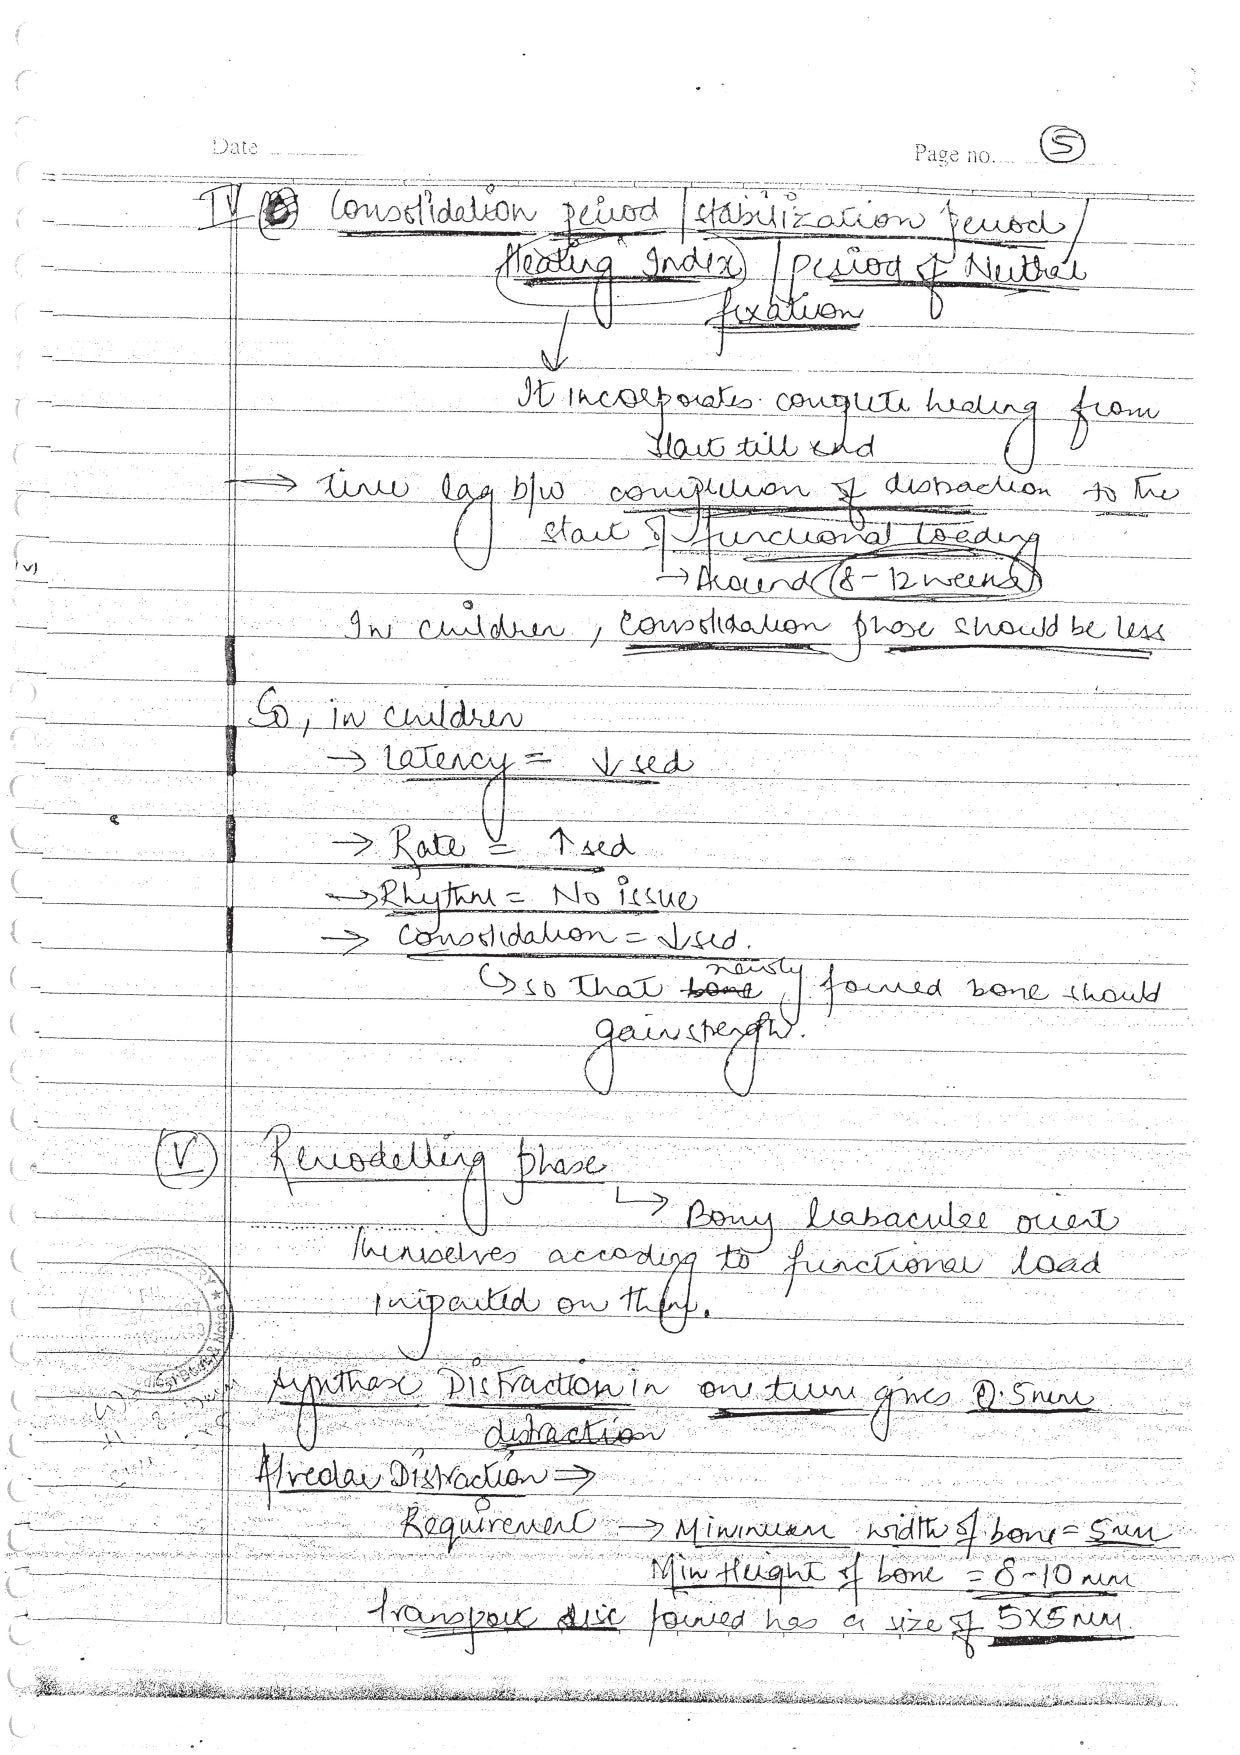 Date
Page no. 5
IV Consolidation period / stabilization period /
Healing Index / Period of Neutral
fixation
It incorporates complete healing from
start till end
→ time lag b/w completion of distraction to the
start of functional loading
→ Around 8-12 weeks
In children, consolidation phase should be less
So, in children
→ Latency = ↓sed
→ Rate = ↑sed
→ Rhythm = No issue
→ Consolidation = ↓sed.
newly
so that bone formed bone should
gain strength.
V Remodelling phase
→ Bony trabaculee orient
themselves accoding to functional load
imparted on them.
Synthase Distraction in one turn gives 0.5mm
distraction
Alveolar Distraction ⇒
Requirement → Minimum width of bone = 5mm
Min Height of bone = 8-10 mm
Transport disc formed has a size of 5x5mm.